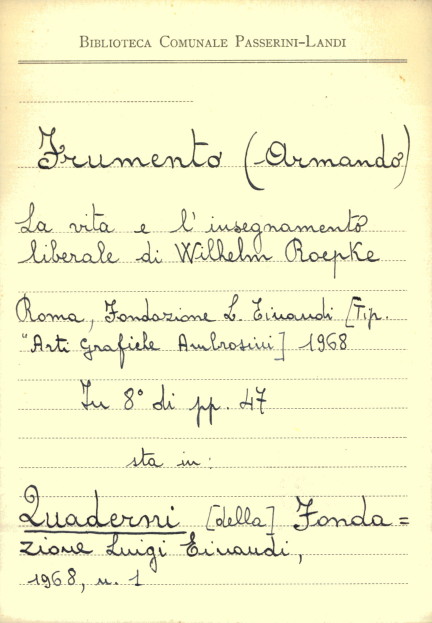 BIBLIOTECA COMUNALE PASSERINI-LANDI
Frumento (Armando)
La vita e l'insegnamento
liberale di Wilhelm Roepke
Roma, Fondazione L. Einaudi [Tip.
"Arti Grafiche Ambrosini] 1968
In 8° di pp. 47
sta in:
Quaderni [della] Fonda=
zione Luigi Einaudi,
1968, n. 1